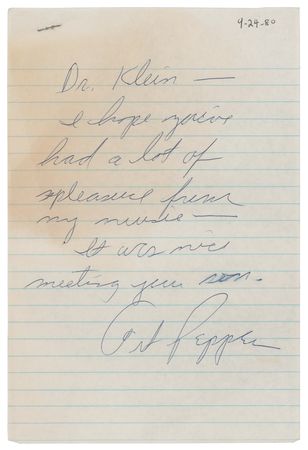 4-24-80
Dr. Klein —
I hope you've
had a lot of
pleasure from
my music —
It was nice
meeting your son.
Art Pepper